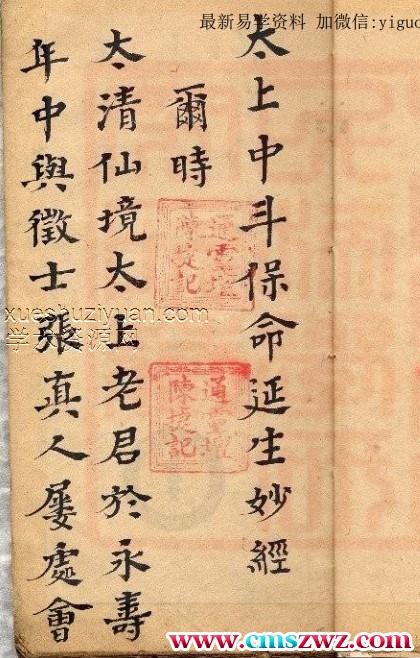 最新易学资料 加微信:yiguo
太上中斗保命延生妙經
爾時
太清仙境太上老君於永壽
年中與徵士張真人屡處會
通雷壇
陳捷記
通雷壇
陳捷記
xueshuziyuan.com
www.cmszwz.com